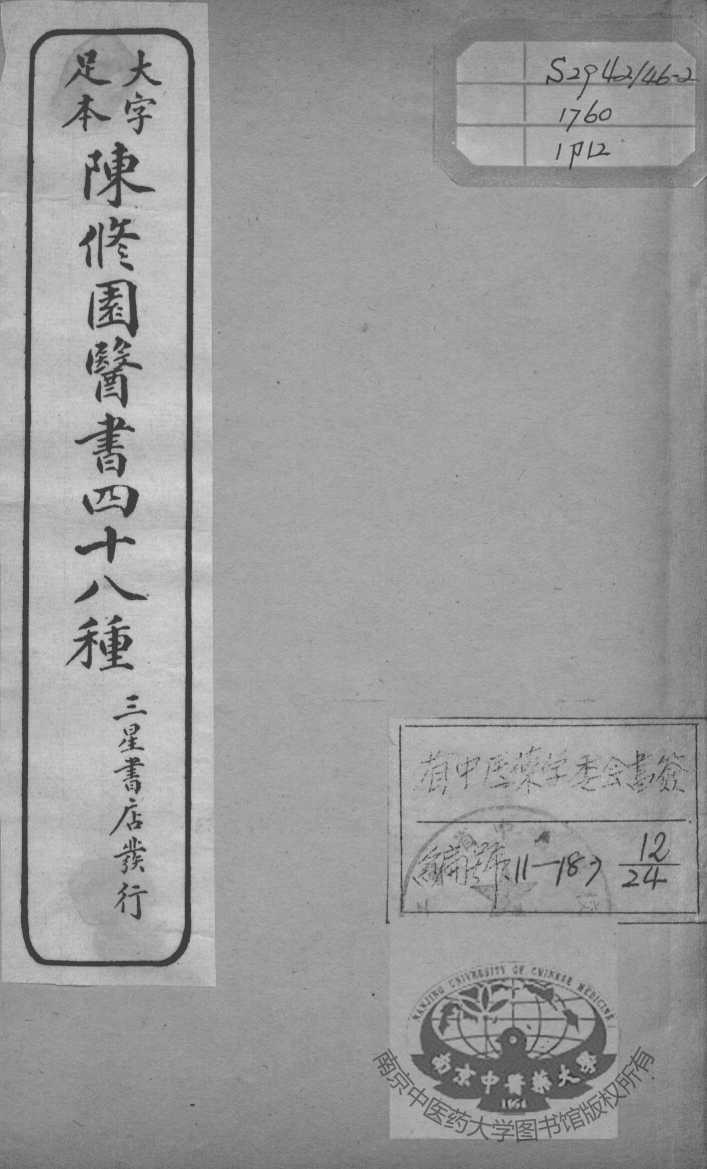 大字
足本
陳修園醫書四十八種
三星書店發行
S2942/46-2
1760
1P12
省中医葯学委会書簽
編號 11-187 12/24
NANJING UNIVERSITY OF CHINESE MEDICINE
南京中醫藥大學
1954
南京中医药大学图书馆版权所有